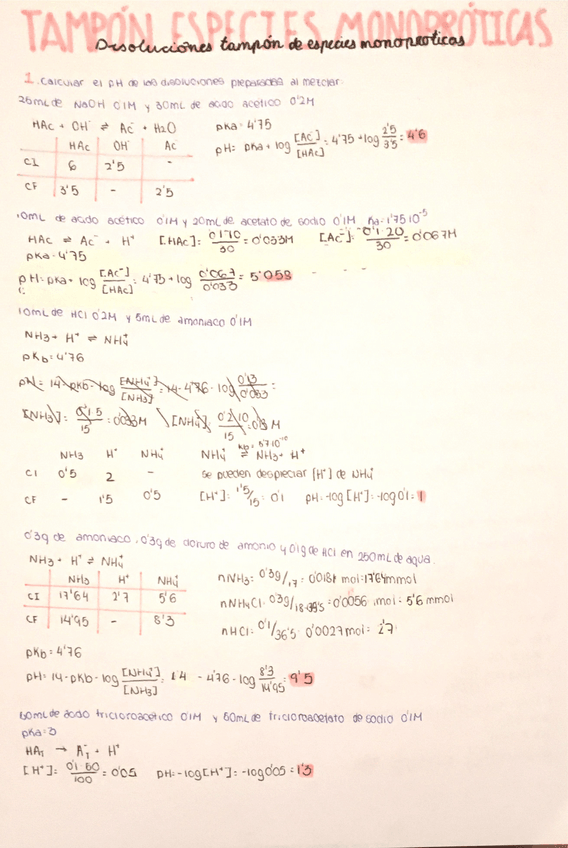 TAMPÓN ESPECIES MONOPRÓTICAS
Disoluciones tampón de especies monopróticas
1. Calcular el pH de las disoluciones preparadas al mezclar:
25mL de NaOH 0'1M y 30mL de ácido acético 0'2M
HAc + OH⁻ ⇌ Ac⁻ + H2O
pKa = 4'75
pH = pKa + log [AC⁻]/[HAc] = 4'75 + log 2'5/3'5 = 4'6
HAc OH⁻ Ac⁻
CI 6 2'5 -
CF 3'5 - 2'5
10mL de ácido acético 0'1M y 20mL de acetato de sodio 0'1M Ka = 1'75·10⁻⁵
HAc ⇌ Ac⁻ + H⁺ [HAc] = 0'1·10/30 = 0'033M [AC⁻] = 0'1·20/30 = 0'067M
pKa = 4'75
pH = pKa + log [AC⁻]/[HAc] = 4'75 + log 0'067/0'033 = 5'058
10mL de HCl 0'2M y 5mL de amoniaco 0'1M
NH3 + H⁺ ⇌ NH4⁺
pKb = 4'76
pH = 14 - pKb - log [NH4⁺]/[NH3] = 14 - 4'76 - log 0'13/0'033 =
[NH3] = 0'1·5/15 = 0'033M [NH4⁺] = 0'2·10/15 = 0'13M
NH3 H⁺ NH4⁺ NH4⁺ ⇌ NH3 + H⁺
CI 0'5 2 - se pueden despreciar [H⁺] de NH4⁺
CF - 1'5 0'5 [H⁺] = 1'5/15 = 0'1 pH = -log [H⁺] = -log 0'1 = 1
0'3g de amoniaco, 0'3g de cloruro de amonio y 0'1g de HCl en 250mL de agua.
NH3 + H⁺ ⇌ NH4⁺
NH3 H⁺ NH4⁺
CI 17'64 2'7 5'6
CF 14'95 - 8'3
nNH3 = 0'3g/17 = 0'0181 mol = 17'64mmol
nNH4Cl = 0'3g/18+35'5 = 0'0056 mol = 5'6 mmol
nHCl = 0'1/36'5 = 0'0027mol = 2'7
pKb = 4'76
pH = 14 - pKb - log [NH4⁺]/[NH3] = 14 - 4'76 - log 8'3/14'95 = 9'5
50mL de ácido tricloroacético 0'1M y 50mL de tricloroacetato de sodio 0'1M
pKa = 0
HA₁ → A₁⁻ + H⁺
[H⁺] = 0'1·50/100 = 0'05 pH = -log [H⁺] = -log 0'05 = 1'3